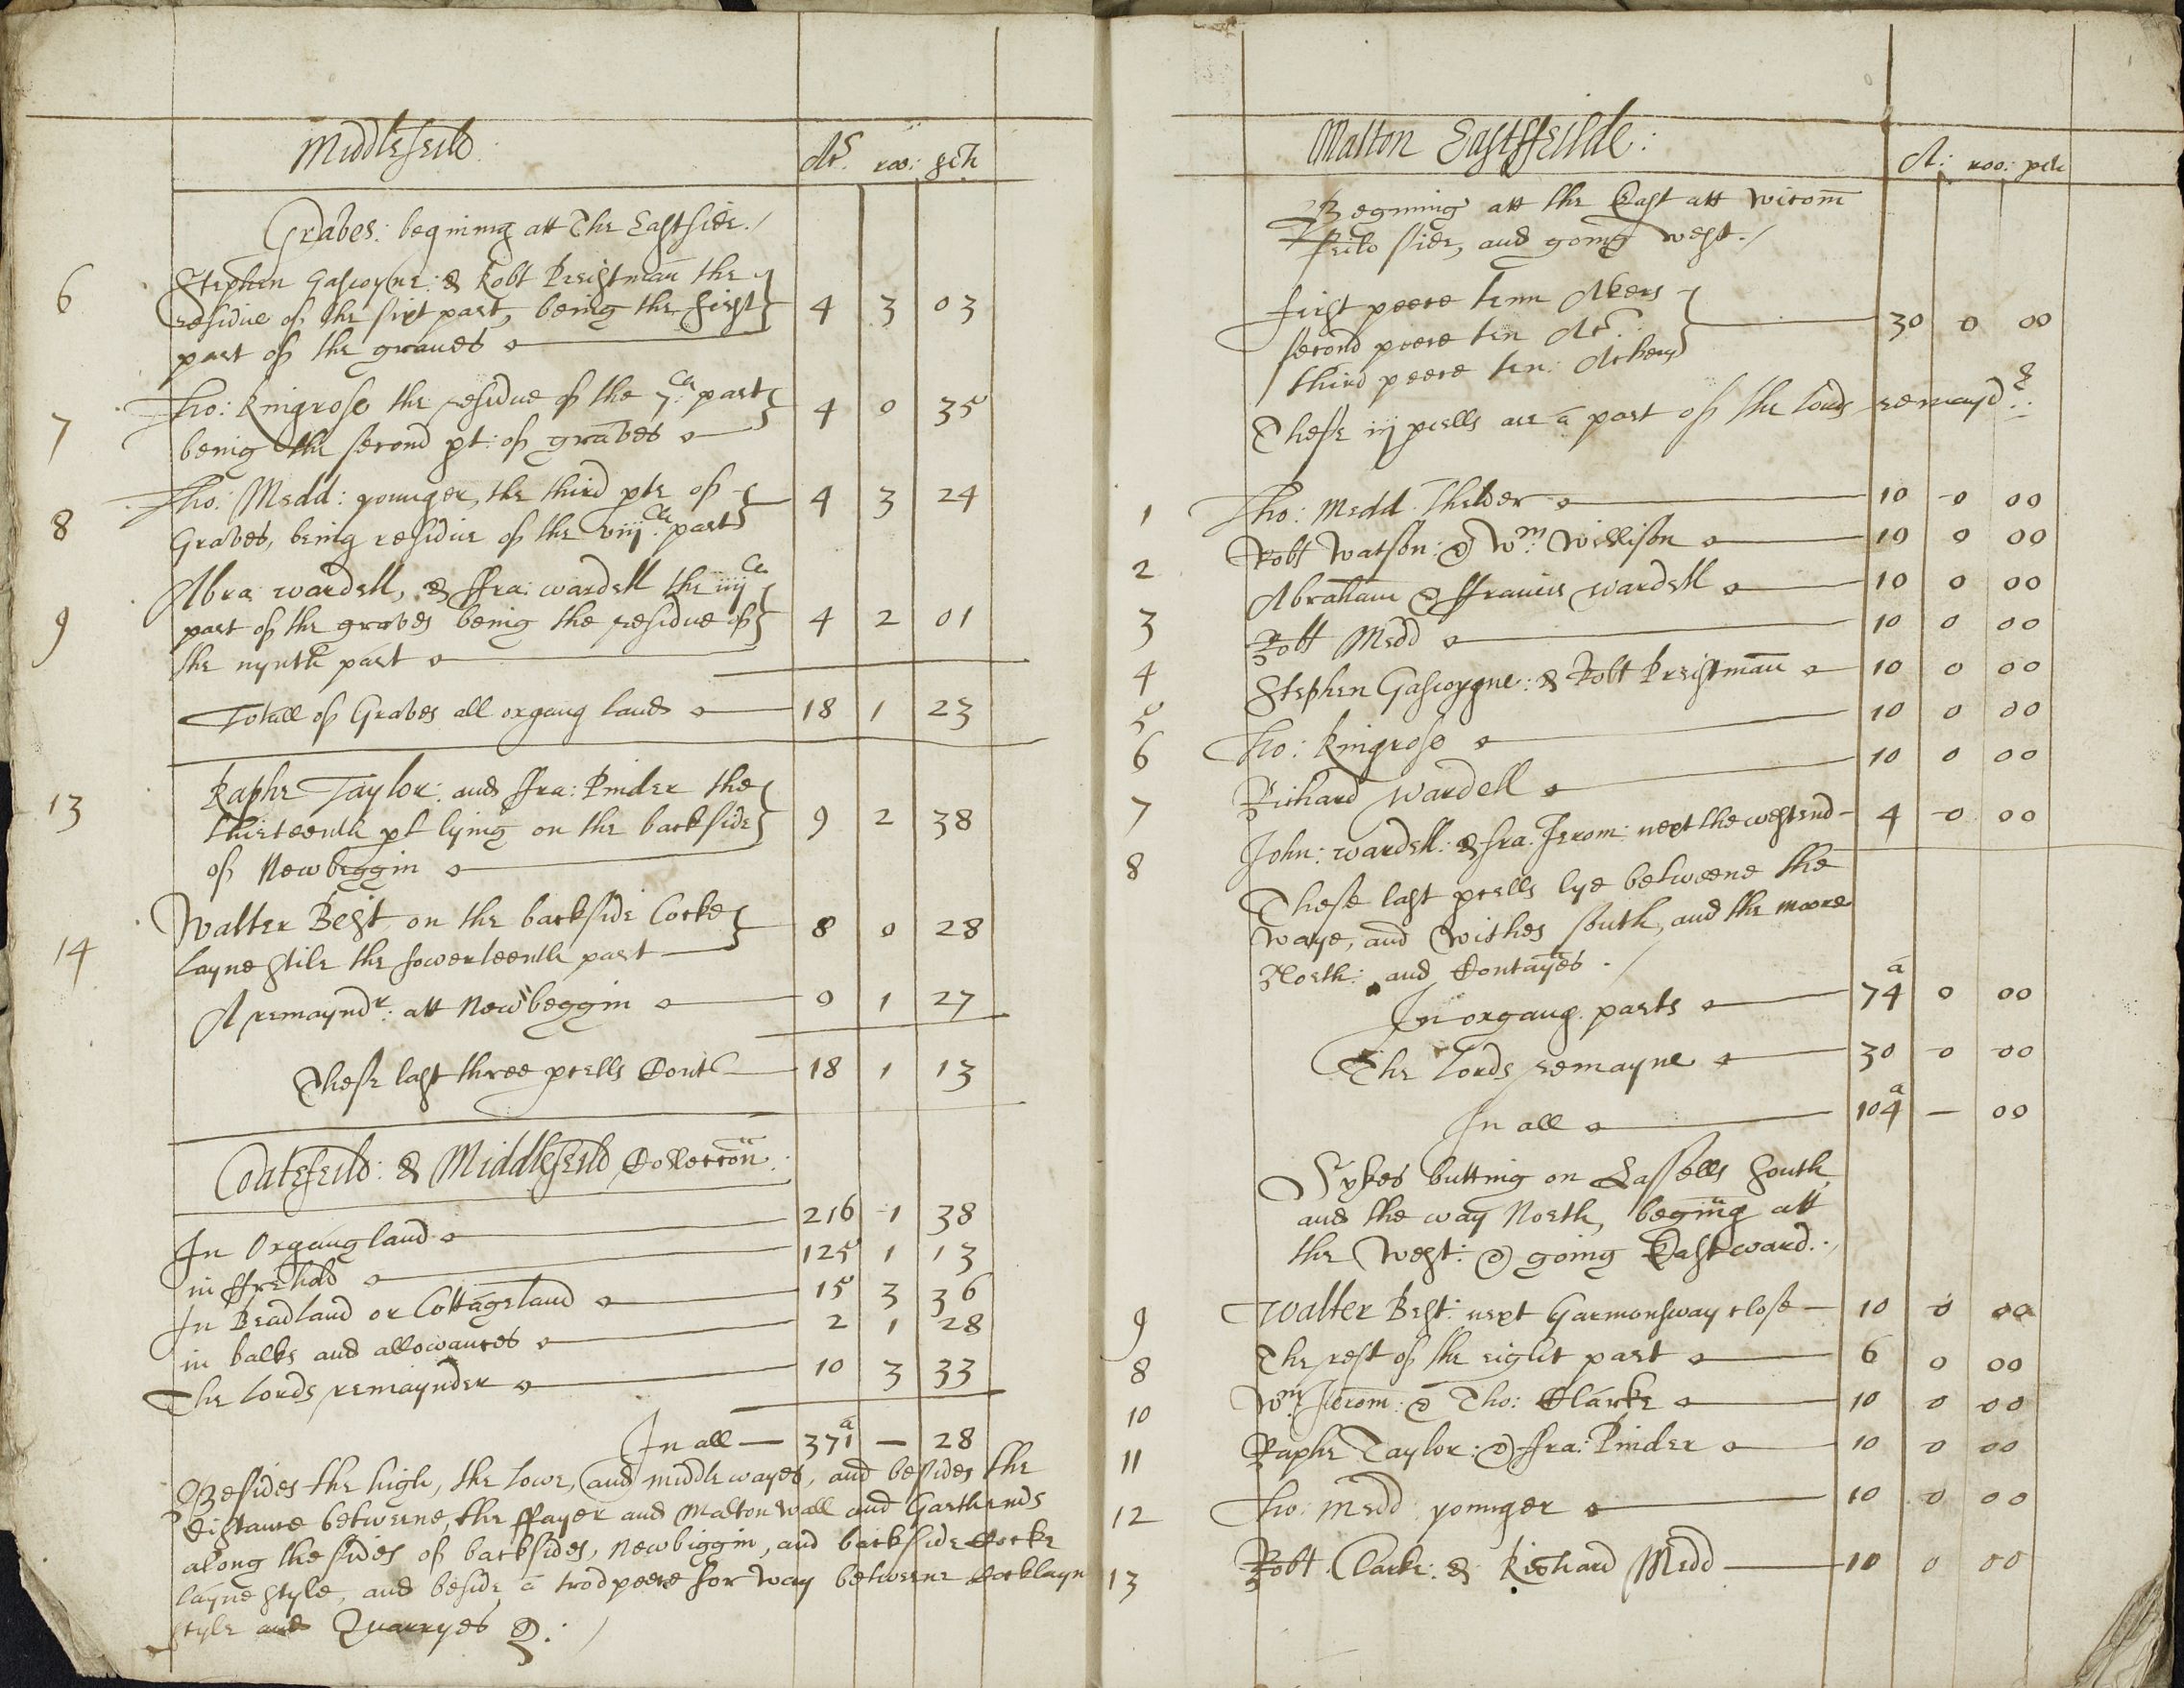 Middlefeild
Acs. roo: pch
Graves: begining att The Eastside./
6 Stephen Gascoyne: & Robt Preistman the
residue of the sixt part, being the first 4 3 03
part of the graves
7 Tho: Ringrose the residue of the 7 part
being the second pt: of graves 4 0 35
8 Tho: Medd: younger, the third pte of 4 3 24
Graves, being residue of the viij part
9 Abra: wardell, & ffra: wardell the iiij
part of the graves being the residue of 4 2 01
the nynth part
Totall of Graves all oxgang lands 18 1 23
13 Raphe Taylor: and ffra: Pinder the
thirteenth pt lying on the backside 9 2 38
of Newbeggin
14 Walter Best on the backside Cocke 8 0 28
layne stile the fowerteenth part
A remayndr: att Newbeggin 0 1 27
These last three pcells Cont 18 1 13
Coatefeild: & Middlefeild Colleccon
In Oxgang land 216 1 38
in ffrehold 125 1 13
In Beadland or Cottageland 15 3 36
in balks and allowances 2 1 28
The lords remaynder 10 3 33
In all 371 a — 28
Besides the high, the lowe, and middle wayes, and besides the
distance betweene, the ffayer and Malton wall and Garthends
along the sides of backsides, Newbiggin, and backside Cocke
layne style, and beside a trodpeece for way betweene Cocklayn
style and Quarryes
Malton Eastffeilde:
A: roo: pch
Begining att the East att Wicom
feild side, and going west./
first peece tenn Akers
second peece ten Acs: 30 0 00
third peece ten: Ackers
These iij pcells are a part of the lords remaynd
1 Tho: Medd Thelder 10 0 00
2 Robt Watson: & Wm: Willison 10 0 00
3 Abraham & ffrancis wardell 10 0 00
4 Robt Medd 10 0 00
5 Stephen Gascoygne: & Robt Preistman 10 0 00
6 Tho: Ringrose 10 0 00
7 Richard Wardell 10 0 00
8 John: wardell: & fra: Jerom: next the westend 4 0 00
These last pcells lye betweene the
waye, and Withes South, and the moore
North: and Contayes ./
In oxgang parts 74 a 0 00
The lords remayne 30 0 00
In all 104 a — 00
Sykes butting on Lassells South
and the way North, begining att
the West: & going Eastward./
9 Walter Best: next Garmonsway close 10 0 00
8 The rest of the eight part 6 0 00
10 Wm: Jerom: & Tho: Clarke 10 0 00
11 Raphe Taylor: & ffra: Pinder 10 0 00
12 Tho: Medd: younger 10 0 00
13 Robt Clarke: & Richard Medd 10 0 00